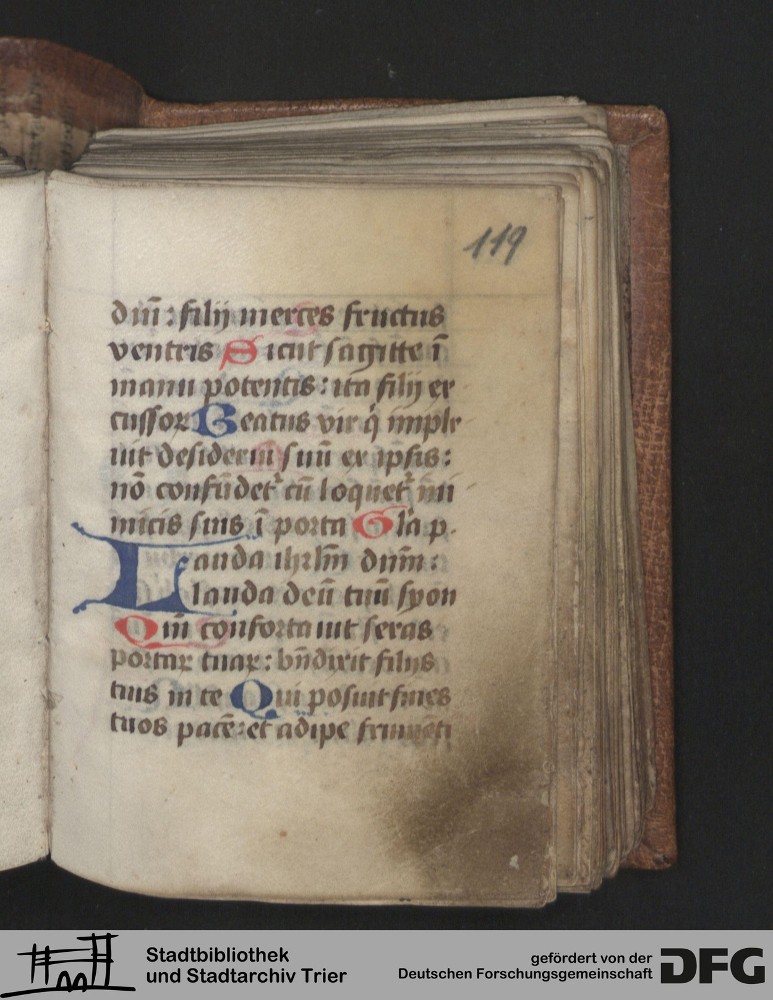 119
dñi: filij merces fructus
ventris Sicut sagitte ī
manu potentis: ita filij ex
cussorꝝ Beatus vir q̇ imple
uit desideriū suū ex ipsis:
nō confūdet᷑ cū loquet᷑ ini
micis suis ī porta Gl̄a p.
Lauda ihrl̄m dn̄m:
lauda deū tuū syon
Qm̄ confortauit seras
portaꝝ tuaꝝ: bn̄dixit filijs
tuis in te Qui posuit fines
tuos pacē: et adipe frumēti
Stadtbibliothek
und Stadtarchiv Trier
gefördert von der
Deutschen Forschungsgemeinschaft
DFG